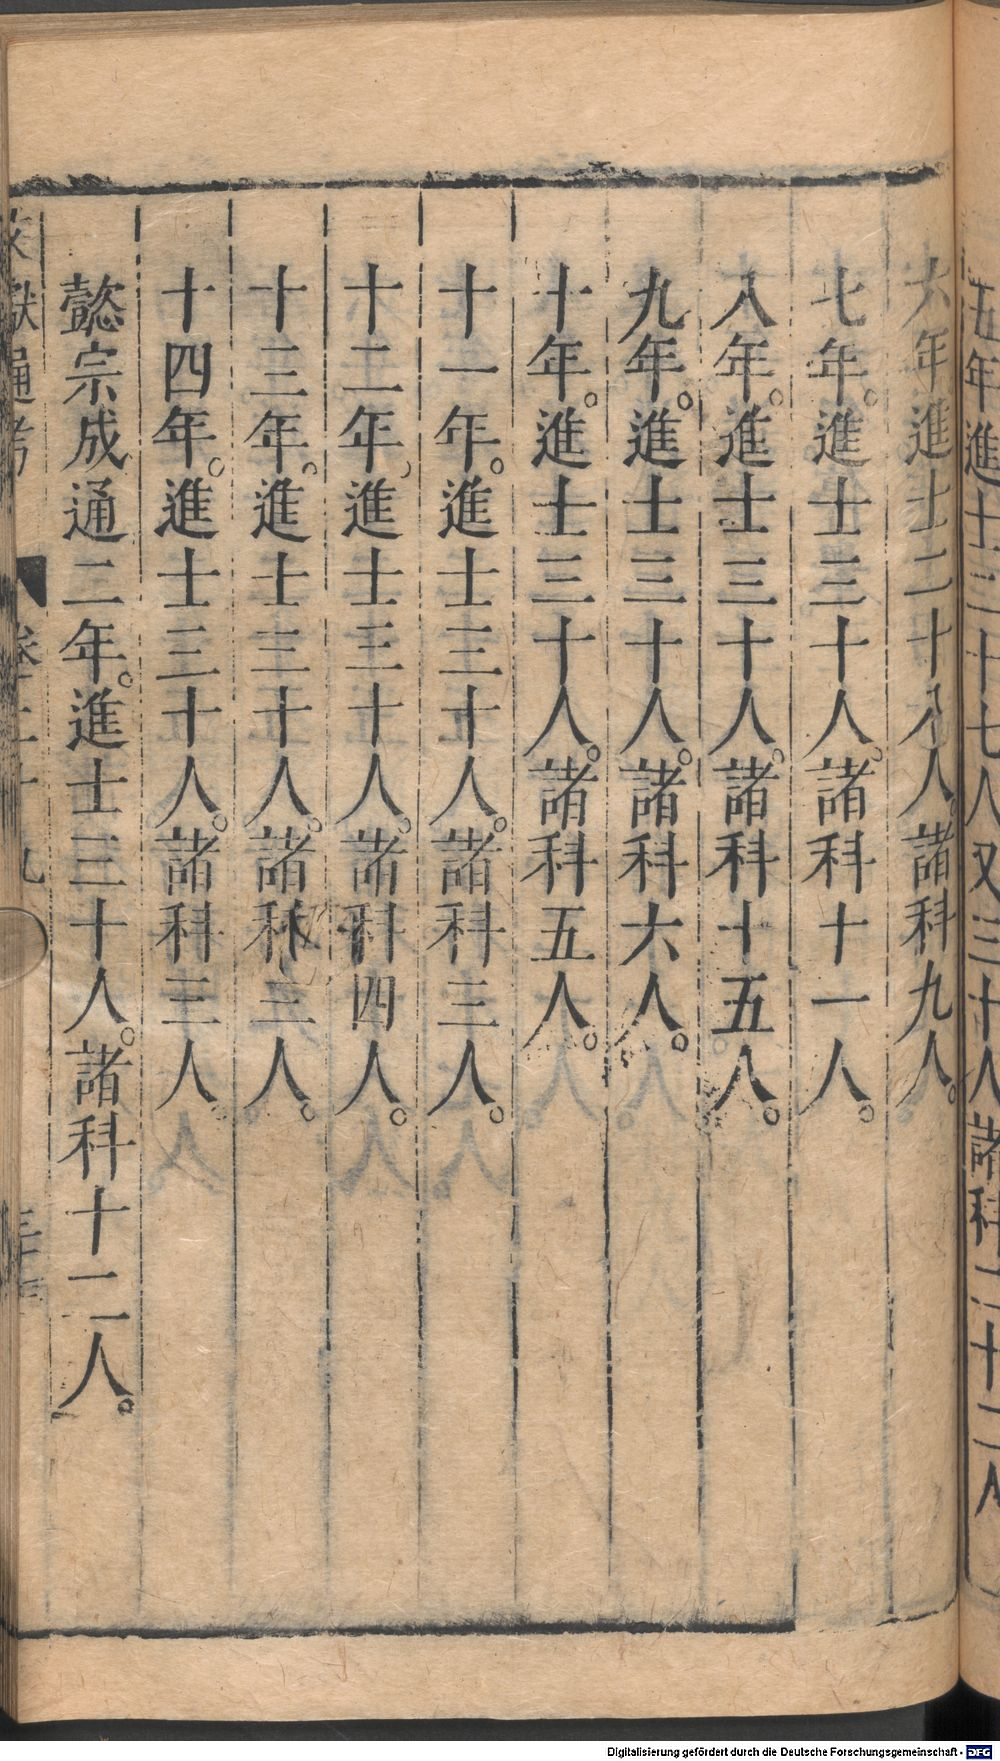 五年進士三十七人又三十人諸科二十二人
六年進士二十八人。諸科九人。
七年。進士三十人。諸科十一人。
八年。進士三十人。諸科十五人。
九年。進士三十人。諸科六人。
十年。進士三十人。諸科五人。
十一年。進士三十人。諸科三人。
十二年。進士三十人。諸科四人。
十三年。進士三十人。諸科三人。
十四年。進士三十人。諸科三人。
懿宗成通二年。進士三十人。諸科十二人。
文獻通考 卷二十九
Digitalisierung gefördert durch die Deutsche Forschungsgemeinschaft - DFG